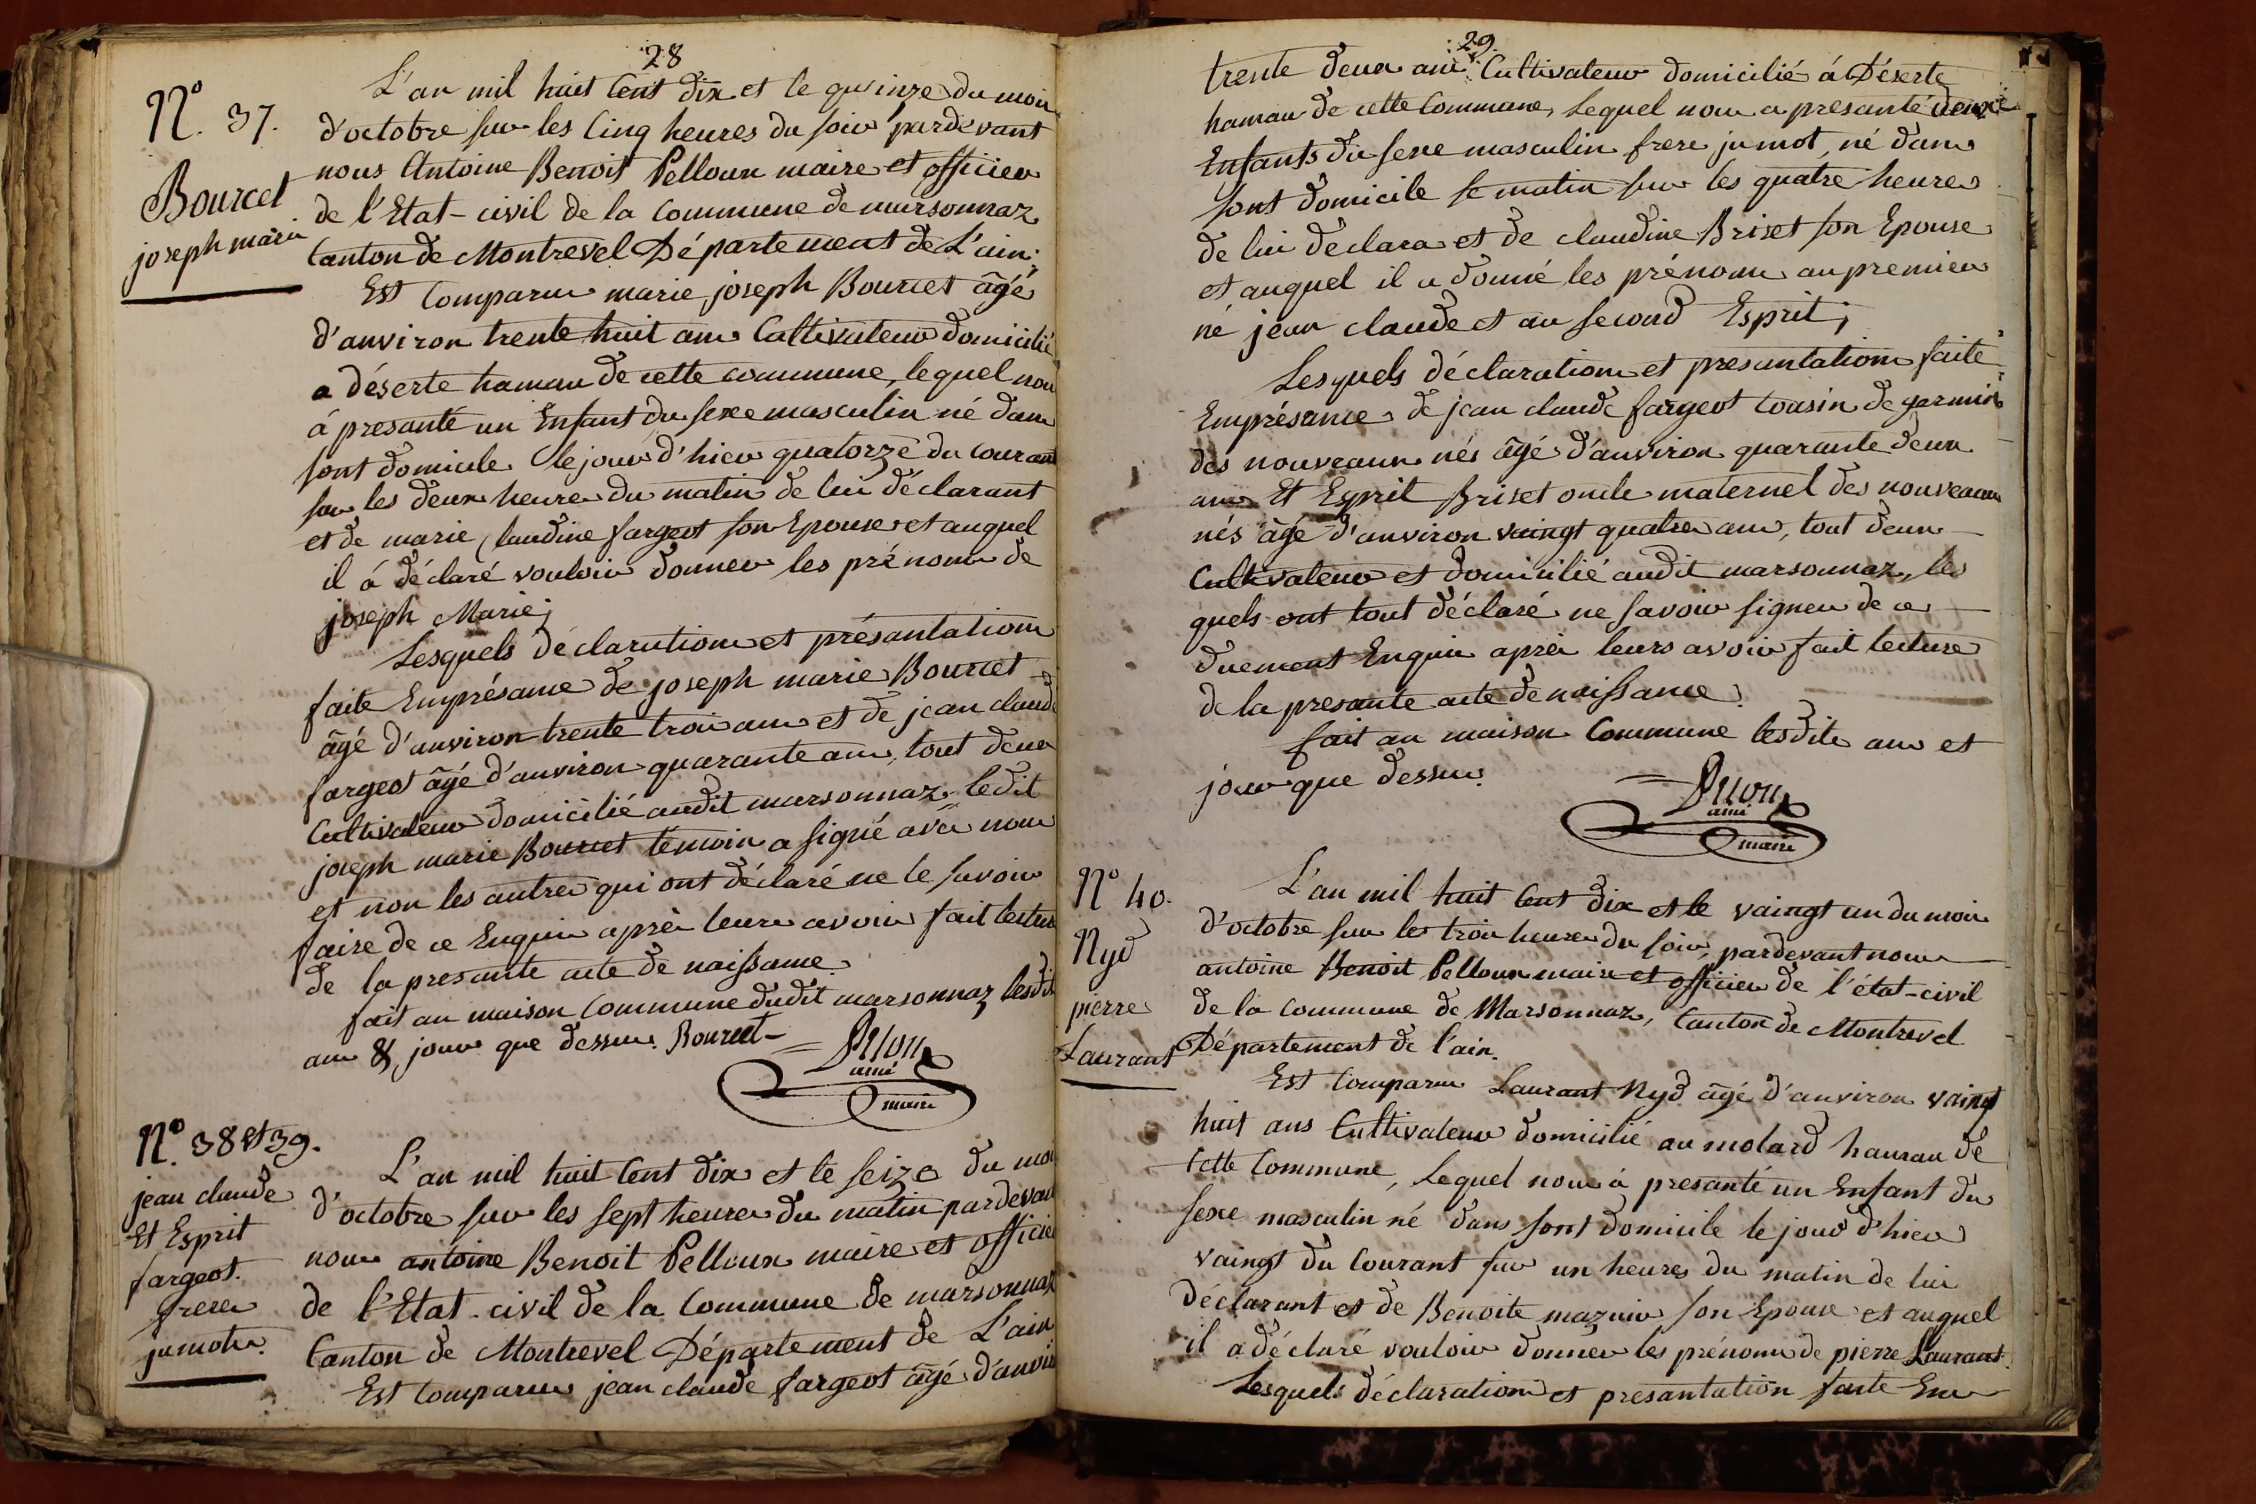 28
N.º 37.
Bourcet
joseph marie
L'an mil huit Cent dix et le quinze du mois
d'octobre sur les Cinq heures du soir pardevant
nous Antoine Benoit Pelloux maire et officier
de l'Etat-civil de la commune de marsonnaz
Canton de Montrevel Département de L'ain;
Est Comparu marie joseph Bourcet âgé
d'anviron trente huit ans Cultivateur domicilié
a déserte hamau de cette commune, lequel nous
á presanté un Enfant du sexe masculin né dans
sont domicile le jour d'hier quatorze du courant
sur les deux heures du matin de lui déclarant
et de marie Claudine fargeot son Epouse et auquel
il á déclaré vouloir donner les prénoms de
joseph Marie;
Lesquels déclarations et présantations
faite Emprésance de joseph marie Bourcet
âgé d'anviron trente trois ans et de jean claude
fargeot âgé d'anviron quarante ans, tout deux
Cultivateur domicilié audit marsonnaz, ledit
joseph marie Bourcet témoin a signé avec nous
et non les autres qui ont déclaré ne le savoir
faire de ce Enquis après leurs avoir fait lecture
de la presante acte de naissance.
fait an maison Commune dudit marsonnaz lesdit
ans & jour que dessus. Bourcet
ainé
maire
N.º 38 et 39.
jean claude
Et Esprit
fargeot.
freres
jumots.
L'an mil huit Cent dix et le seize du mois
d'octobre sur les sept heures du matin pardevant
nous antoine Benoit Pelloux maire et officier
de l'Etat-civil de la Commune de marsonnaz
Canton de Montrevel Département de L'ain
Est Comparu jean claude fargeot âgé d'anviron
29.
trente deux ans Cultivateur domicilié á Déserte
hamau de cette Commune, Lequel nous a presanté deux
Enfants du sexe masculin frere jumot, né dans
sont domicile se matin sur les quatre heures
de lui declara et de claudine Brizet son Epouse
et auquel il a donné les prénoms au premier
né jean claude et au second Esprit;
Lesquels déclarations et presantations faite
Emprésance de jean claude fargeot Cousin de germin
des nouveaux nés âgé d'anviron quarante deux
ans Et Esprit Brizet oncle maternel des nouveaux
nés âgé d'anviron vaingt quatre ans, tout deux
Cultivateur et domicilié audit marsonnaz, les
quels ont tout déclaré ne savoir signer de ce
duement Enquis après leurs avoir fait lecture
de la presante acte de naissance.
fait an maison Commune lesdits ans et
jour que dessus.
ainé
maire
Nº 40.
Nyd
pierre
Laurant
L'an mil huit Cent dix et le vaingt un du mois
d'octobre sur les trois heures du soir, pardevant nous
antoine Benoit Pelloux maire et officier de l'état-civil
de la commune de Marsonnaz, Canton de Montrevel
Département de l'ain.
Est Comparu Laurant Nyd âgé d'anviron vaingt
huit ans Cultivateur domicilié au molard hamau de
Cette Commune, Lequel nous á presanté un Enfant du
sexe masculin né dans sont domicile le jour d'hier
vaingt du Courant sur un heures du matin de lui
Déclarant et de Benoite mazuir son Epouse et auquel
il a déclaré vouloir donner les prénoms de pierre Laurant.
Lesquels déclarations et presantation faite En